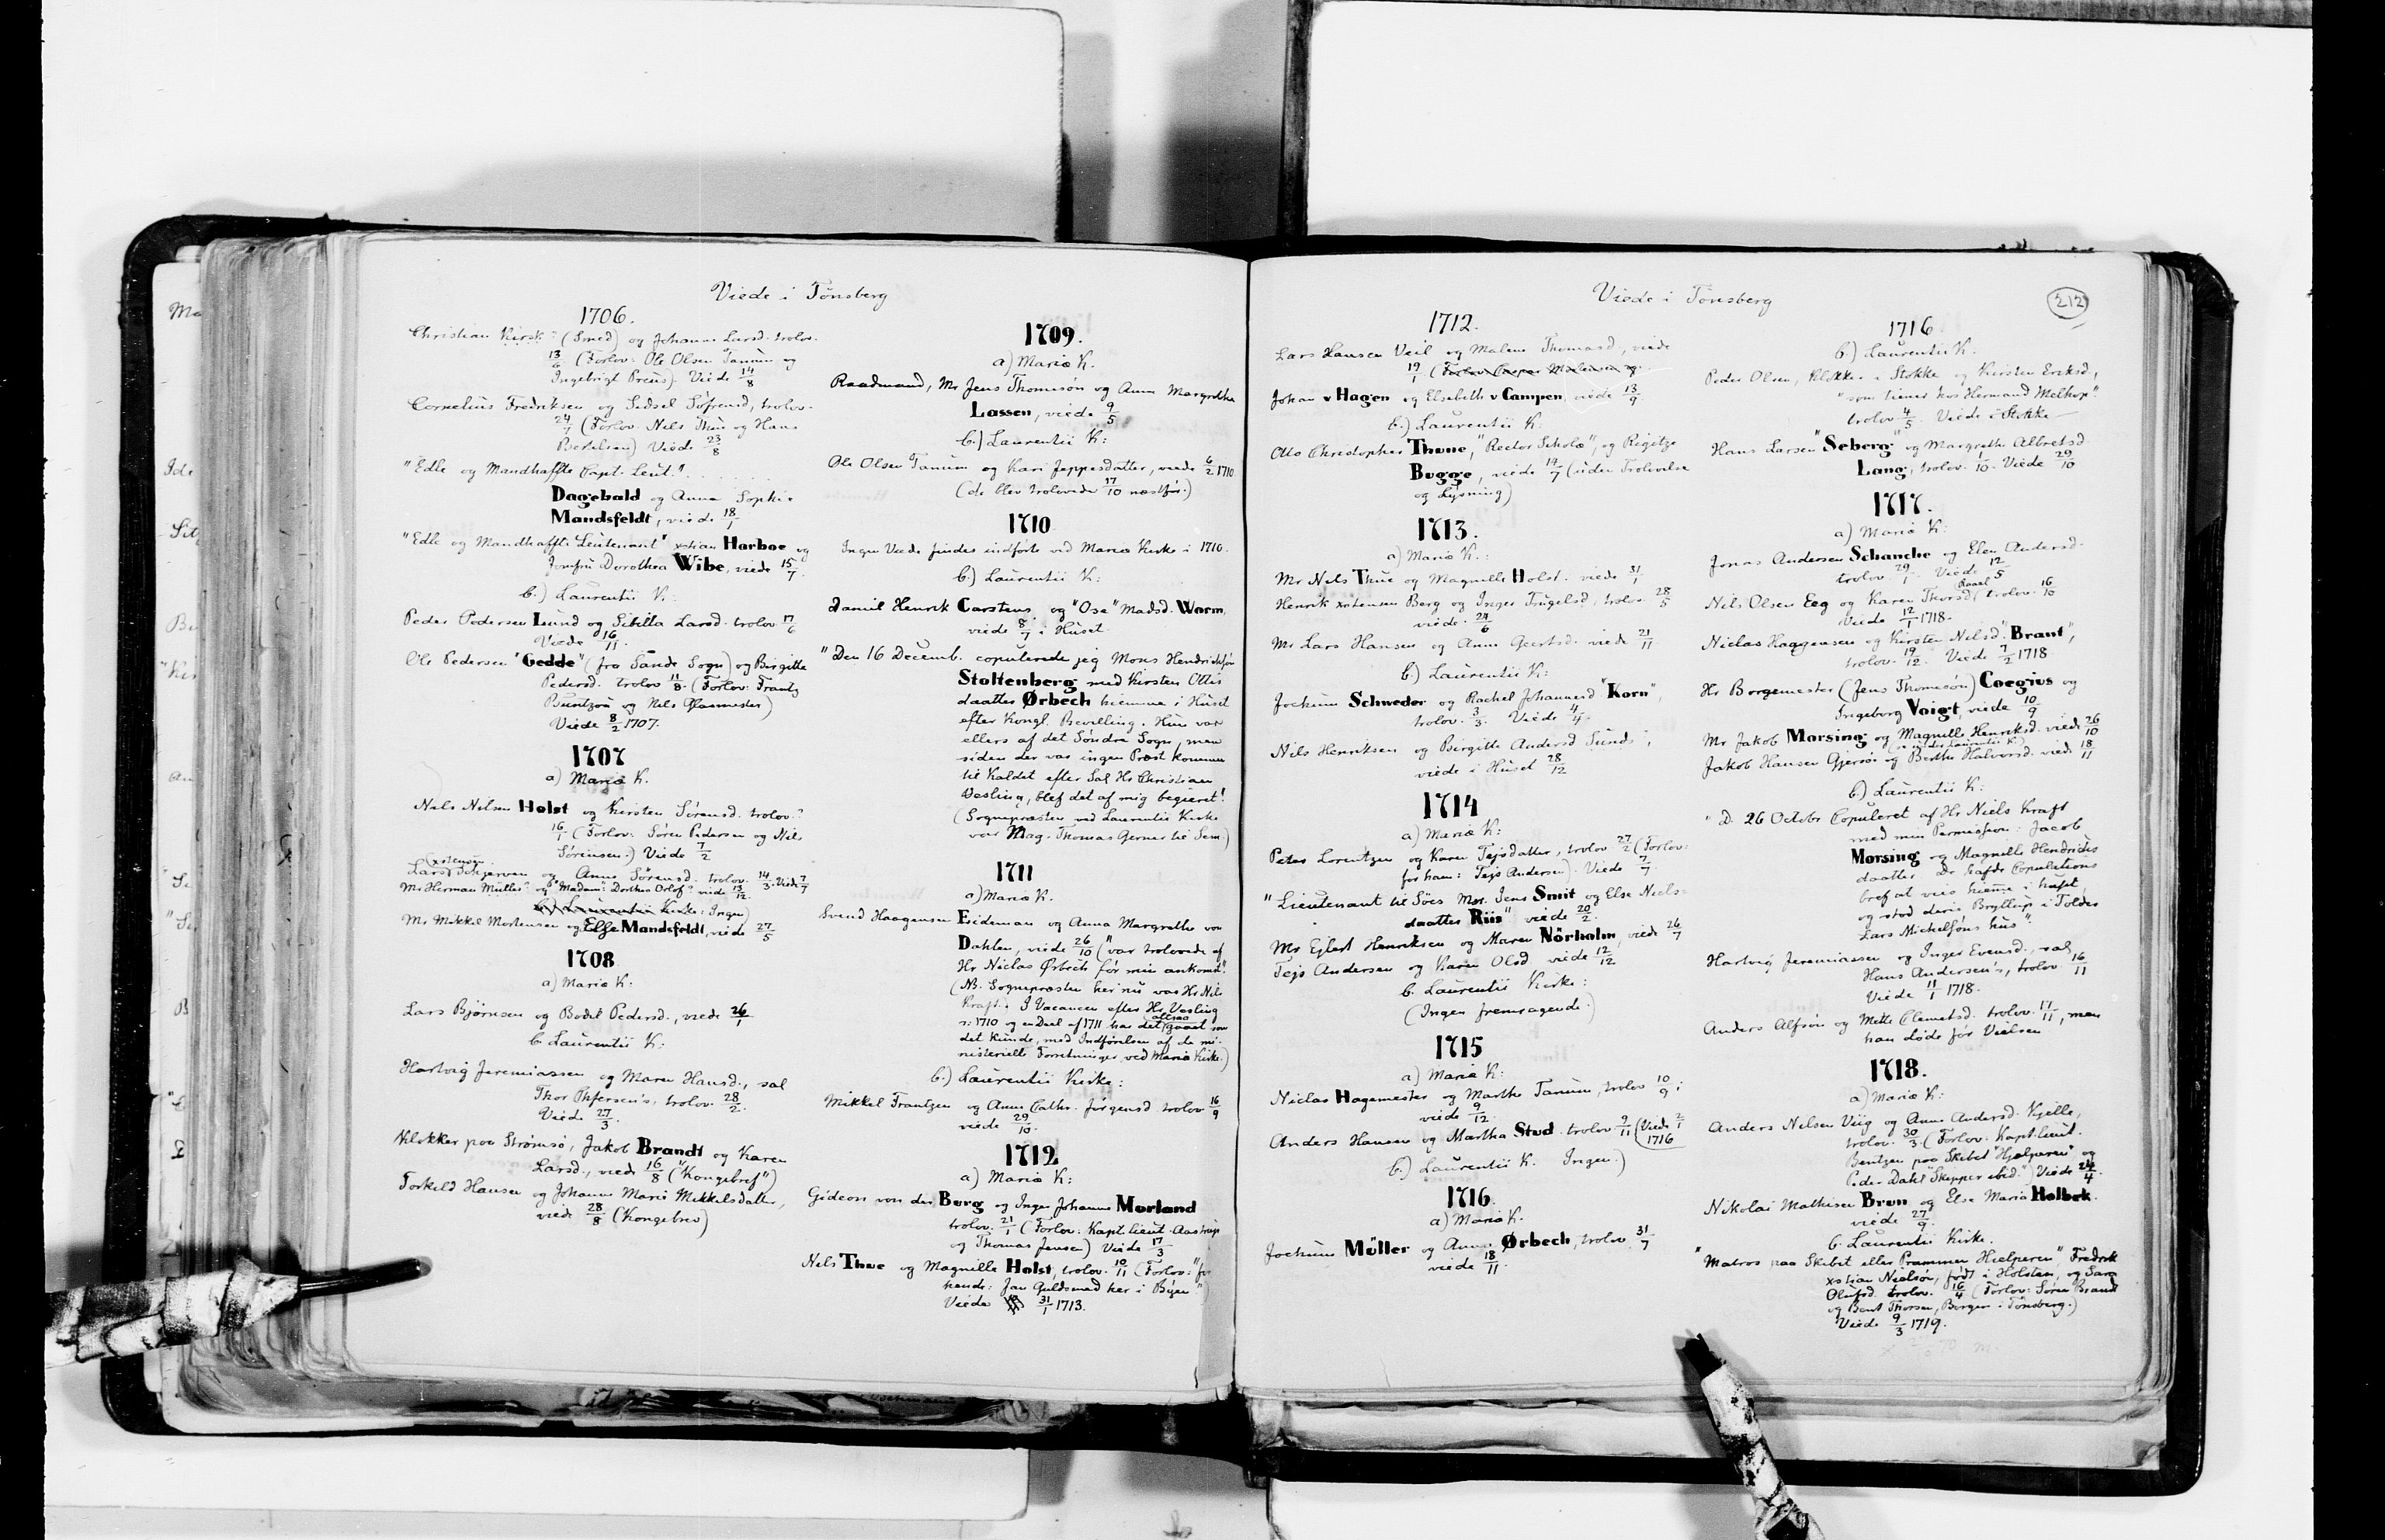 Viede i Tönsberg
1706.
Christian Kirsk? (Smed) og Johanne Larsd. trolov.
13/6 (Forlov: Ole Olsen Tanum og
Ingebrigt Preus). Viede 14/8
Cornelius Fredriksen og Sidsel Söfrensd, trolov.
24/7 (Forlov. Nels Thue og Hans
Bertelsen) Viede 23/8
"Edle og Mandhaffte Capt. Leut." . . . . . .
Dagebald og Anna Sophie
Mandsfeldt, viede 18/1
"Edle og Mandhaffte Leutenant" xstian Harboe og
Jomfru Dorothea Wibe, viede 15/7.
b.) Laurentii K:
Peder Pedersen Lund og Sibilla Larsd. trolov. 17/6
Viede 16/11.
Ole Pedersen "Gedde" (fra Sande Sogn) og Birgitte
Pedersd. trolov 11/8. (Forlov: Frantz
Buntzou og Nels Glasmester)
Viede 8/2 1707.
1707
a) Mariæ K.
Nels Nilsen Holst og Kirsten Sörensd. trolov.?
16/1 (Forlov: Sören Pedersen og Nils
Sörensen.) Viede 7/2
Lars og Anne Sörensd. trolov. 14/3. Viede 7/7
Mr Herman Müller? og "Madam": Dorthea Orlof? viede 13/12.
b.) Laurentii Kirke: Ingen)
Mr Mikkel Mortensen og Else Mandsfeldt, viede 27/5
1708
a) Mariæ K:
Lars Björnsen og Bodil Pedersd., viede 26/1
b. Laurentii K:
Hartvig Jeremiassen og Maren Hansd., sal
Thor Phfersen's, trolov. 28/2.
Viede 27/3.
Klokker paa Strømsö, Jakob Brandt og Karen
Larsd., viede 16/8 ("Kongebref")
Torkeld Hansen og Johanne Marie Mikkelsdatter,
viede 28/8 (Kongebrev)
1709.
a) Mariæ K.
Raadmand, Mr Jens Thomesön og Anna Margretha
Lassen, viede 9/5
b.) Laurentii K:
Ole Olsen Tanum og Kari Jeppesdatter, viede 6/2 1710
(de blev trolovede 17/10 næstfør.)
1710
Ingen Viede findes indførte ved Mariæ Kirke i 1710.
b.) Laurentii K:
Daniel Henrik Carstens, og "Ose" Madsd. Worm,
viede 8/7 i Huset
"Den 16 Decemb. copulerede jeg Mons Hendrichsøn
Stoltenberg med Kirsten Ottis
daatter Ørbech hiemme i Huset
efter Kongl. Bevilling. Hun var
ellers af det Söndre Sogn, men
siden der var ingen Præst kommen
til Kaldet efter Sal Hr Christian
Vesling, blef det af mig begieret!
(Sognepræsten ved Laurentii Kirke
var Mag. Thomas Gerner til Sem.)
1711
a) Mariæ K.
Svend Haagensen Eideman og Anna Margrethe von
Dahlen, viede 26/10 ("var trolovede af
Hr Niclas Ørbech før min ankomst".
(NB. Sognepræsten her nu var Hr Nils
Kraft. I Vacancen efter Hr Vesling
ɔ: 1710 og en Deel af 1711 har det altsaa gaaet som
det kunde, med Indførelsen af de mi-
nisterielle Forretninger ved Mariæ Kirke.)
b.) Laurentii Kirke:
Mikkel Frantzen og Anne Cathr. Jörgensd. trolov 16/9
viede 29/10.
1712
a) Mariæ K:
Gideon von der Burg og Inger Johanne Morland
trolov. 21/1 (Forlov: Kapt. lieut. Aastrup
og Thomas Jensen) Viede 17/3
Nels Thue og Magnelle Holst, trolov. 10/11 (Forlov: "for
hende: Jan Guldsmed her i Byen")
Viede 31/1 1713.
Viede i Tönsberg
212
1712.
Lars Hansen Veil og Malene Thomasd, viede
19/1
Johan v Hagen og Elsebeth v Campen, viede 13/9
b.) Laurentii K:
Otto Christopher Thune, "Rector Scholæ", og Rigitze
Bugge, viede 19/7 (uden Trolovelse
og Lysning)
1713.
a) Mariæ K.:
Mr Nels Thue og Magnelle Holst. viede 31/1
Henrik xstensen Berg og Inger Trugelsd, trolov 28/5
viede. 24/6
Mr Lars Hansen og Anne Geertsd. viede 21/11
b.) Laurentii K:
Jochum Schweder og Rachel Johannesd "Korn",
trolov. 3/3. Viede 4/4.
Nils Henriksen og Birgitte Andersd Sunds,
viede i Huset 28/12
1714
a) Mariæ K:
Peter Lorentzen og Karen Tejsdatter, trolov 27/2 (Forlov:
for ham: Tejs Andersen) Viede 7/7.
"Lieutenant til Söes Mr. Jens Smit og Else Niels-
daatter Riis" viede 20/2.
Mr Ejlert Henriksen og Maren Nörholm, viede 26/7
Tejs Andersen og Karen Olsd viede 12/12
b. Laurentii Kirke:
(Ingen fremragende.)
1715
a) Mariæ K:
Niclas Hagemester og Marthe Tanum, trolov 10/9;
viede 9/12.
Anders Hansen og Martha Stud. trolov 9/11 (Viede 2/1
1716
b.) Laurentii K. Ingen.)
1716.
a) Mariæ K.
Jochum Müller og Anna Ørbech, trolov 31/7
viede 18/11.
1716
b.) Laurentii K.
Peder Olsen, Klokker i Stokke og Kirsten Eriksd,
"som tiener hos Hermand Melhop".
trolov. 4/5. Viede i Stokke —
Hans Larsen "Seberg" og Margrethe Albretsd.
Lang, trolov. 1/10. Viede 29/10
1717.
a) Mariæ K:
Jonas Andersen Schanche og Elen Andersd.
trolov. 29/1. Viede 12/5
Nils Olsen Eeg og Karen Thorsd trolov. 16/10
Viede 12/1 1718.
Niclas Haagensen og Kirsten Nilsd. "Brant",
trolov. 19/12. Viede 7/2 1718
Hr Borgemester (Jens Thomesön) Coegius og
Ingeborg Voigt, viede 10/9
Mr Jakob Morsing og Magnelle Henriksd. viede 26/10
Jakob Hansen Gjersøe og Berthe Halvorsd. viede 18/11
b.) Laurentii K:
"D. 26 Octobr Copuleret af Hr Niels Kraft
med min Permission: Jacob
Morsing og Magnelle Hendrichs
daatter. De hafde Copulations
bref at vies hieme i huset,
og stod deris Bryllup i Tolder
Lars Michelsöns hus".
Hartvig Jeremiassen og Inger Evensd., sal
Hans Andersen's, trolov. 16/11
Viede 11/1 1718.
Anders Alfsön og Mette Clemetsd. trolov. 17/11, men
han døde før Vielsen
1718.
a) Mariæ K:
Anders Nelsen Viig og Anne Andersd. Kjelle,
trolov. 30/3. (Forlov: Kapt. lieut.
Bentzen paa Skibet "Hjælperen", og
Peder Dahl "Skipper ibid.") Viede 24/4.
Nikolai Mathisen Brun og Else Maria Holbek.
viede 27/9.
b. Laurentii Kirke.
"Matros paa Skibet eller Prammen Hielperen", Fredrik
xstian Nielsön, født i Holsten, og Sara
Olufsd. trolov. 16/4 (Forlov: Sören Brandt
og Bent Thorsen, Borgere i Tönsberg.)
Viede 9/3 1719.